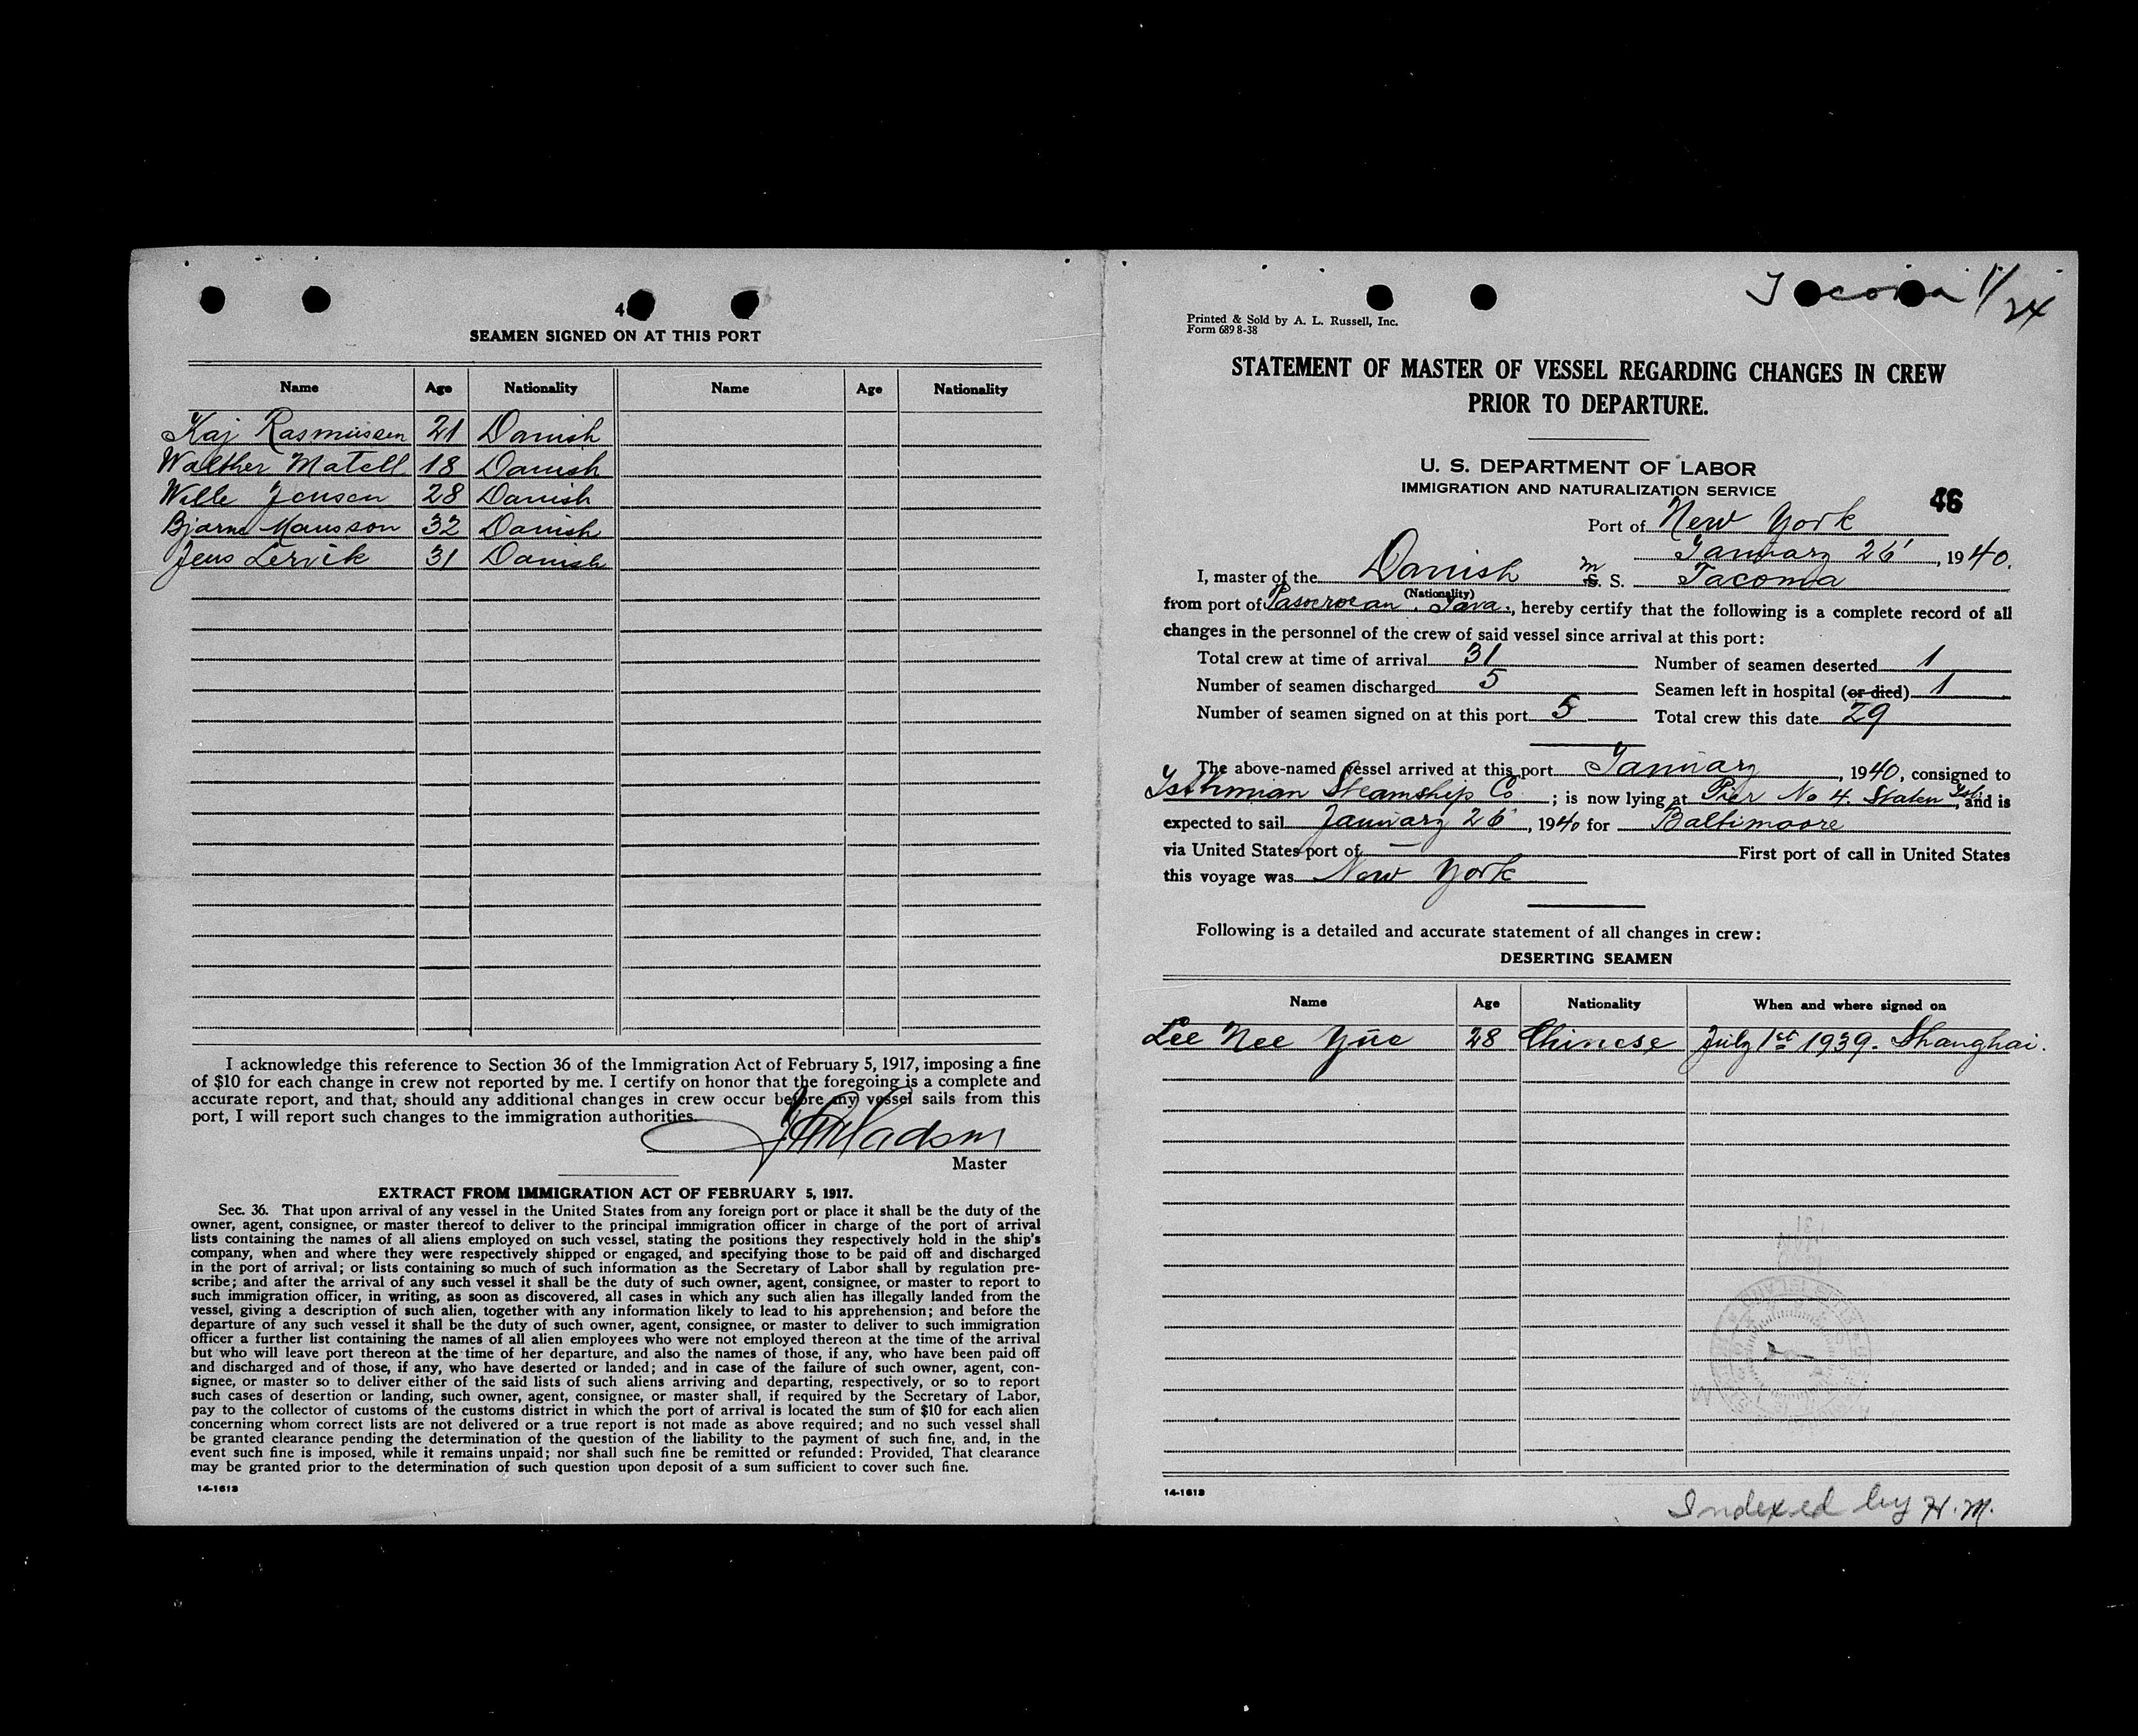 4
SEAMEN SIGNED ON AT THIS PORT
Name Age Nationality Name Age Nationality
Kaj Rasmussen 21 Danish
Walther Matell 18 Danish
Wille Jensen 28 Danish
Bjarne Mausson 32 Danish
Jens Lervik 31 Danish
I acknowledge this reference to Section 36 of the Immigration Act of February 5, 1917, imposing a fine
of $10 for each change in crew not reported by me. I certify on honor that the foregoing is a complete and
accurate report, and that, should any additional changes in crew occur before my vessel sails from this
port, I will report such changes to the immigration authorities.
Madsen
Master
EXTRACT FROM IMMIGRATION ACT OF FEBRUARY 5, 1917.
Sec. 36. That upon arrival of any vessel in the United States from any foreign port or place it shall be the duty of the
owner, agent, consignee, or master thereof to deliver to the principal immigration officer in charge of the port of arrival
lists containing the names of all aliens employed on such vessel, stating the positions they respectively hold in the ship's
company, when and where they were respectively shipped or engaged, and specifying those to be paid off and discharged
in the port of arrival; or lists containing so much of such information as the Secretary of Labor shall by regulation pre-
scribe; and after the arrival of any such vessel it shall be the duty of such owner, agent, consignee, or master to report to
such immigration officer, in writing, as soon as discovered, all cases in which any such alien has illegally landed from the
vessel, giving a description of such alien, together with any information likely to lead to his apprehension; and before the
departure of any such vessel it shall be the duty of such owner, agent, consignee, or master to deliver to such immigration
officer a further list containing the names of all alien employees who were not employed thereon at the time of the arrival
but who will leave port thereon at the time of her departure, and also the names of those, if any, who have been paid off
and discharged and of those, if any, who have deserted or landed; and in case of the failure of such owner, agent, con-
signee, or master so to deliver either of the said lists of such aliens arriving and departing, respectively, or so to report
such cases of desertion or landing, such owner, agent, consignee, or master shall, if required by the Secretary of Labor,
pay to the collector of customs of the customs district in which the port of arrival is located the sum of $10 for each alien
concerning whom correct lists are not delivered or a true report is not made as above required; and no such vessel shall
be granted clearance pending the determination of the question of the liability to the payment of such fine, and, in the
event such fine is imposed, while it remains unpaid; nor shall such fine be remitted or refunded: Provided, That clearance
may be granted prior to the determination of such question upon deposit of a sum sufficient to cover such fine.
14-1613
Tacoma 1/24
Printed & Sold by A. L. Russell, Inc.
Form 689 8-38
STATEMENT OF MASTER OF VESSEL REGARDING CHANGES IN CREW
PRIOR TO DEPARTURE.
U. S. DEPARTMENT OF LABOR
IMMIGRATION AND NATURALIZATION SERVICE
46
Port of New York
January 26', 1940.
I, master of the Danish M S. S. Tacoma
(Nationality)
from port of Pasoeroean. Java., hereby certify that the following is a complete record of all
changes in the personnel of the crew of said vessel since arrival at this port:
Total crew at time of arrival 31 Number of seamen deserted 1
Number of seamen discharged 5 Seamen left in hospital (or died) 1
Number of seamen signed on at this port 5 Total crew this date 29
The above-named vessel arrived at this port January, 1940, consigned to
Isthmian Steamship Co; is now lying at Pier No 4. Staten Isl, and is
expected to sail January 26', 1940 for Baltimoore
via United States port of — First port of call in United States
this voyage was New York
Following is a detailed and accurate statement of all changes in crew:
DESERTING SEAMEN
Name Age Nationality When and where signed on
Lee Nee Yüe 28 Chinese July 1st 1939. Shanghai.
14-1613
Indexed by H.M.